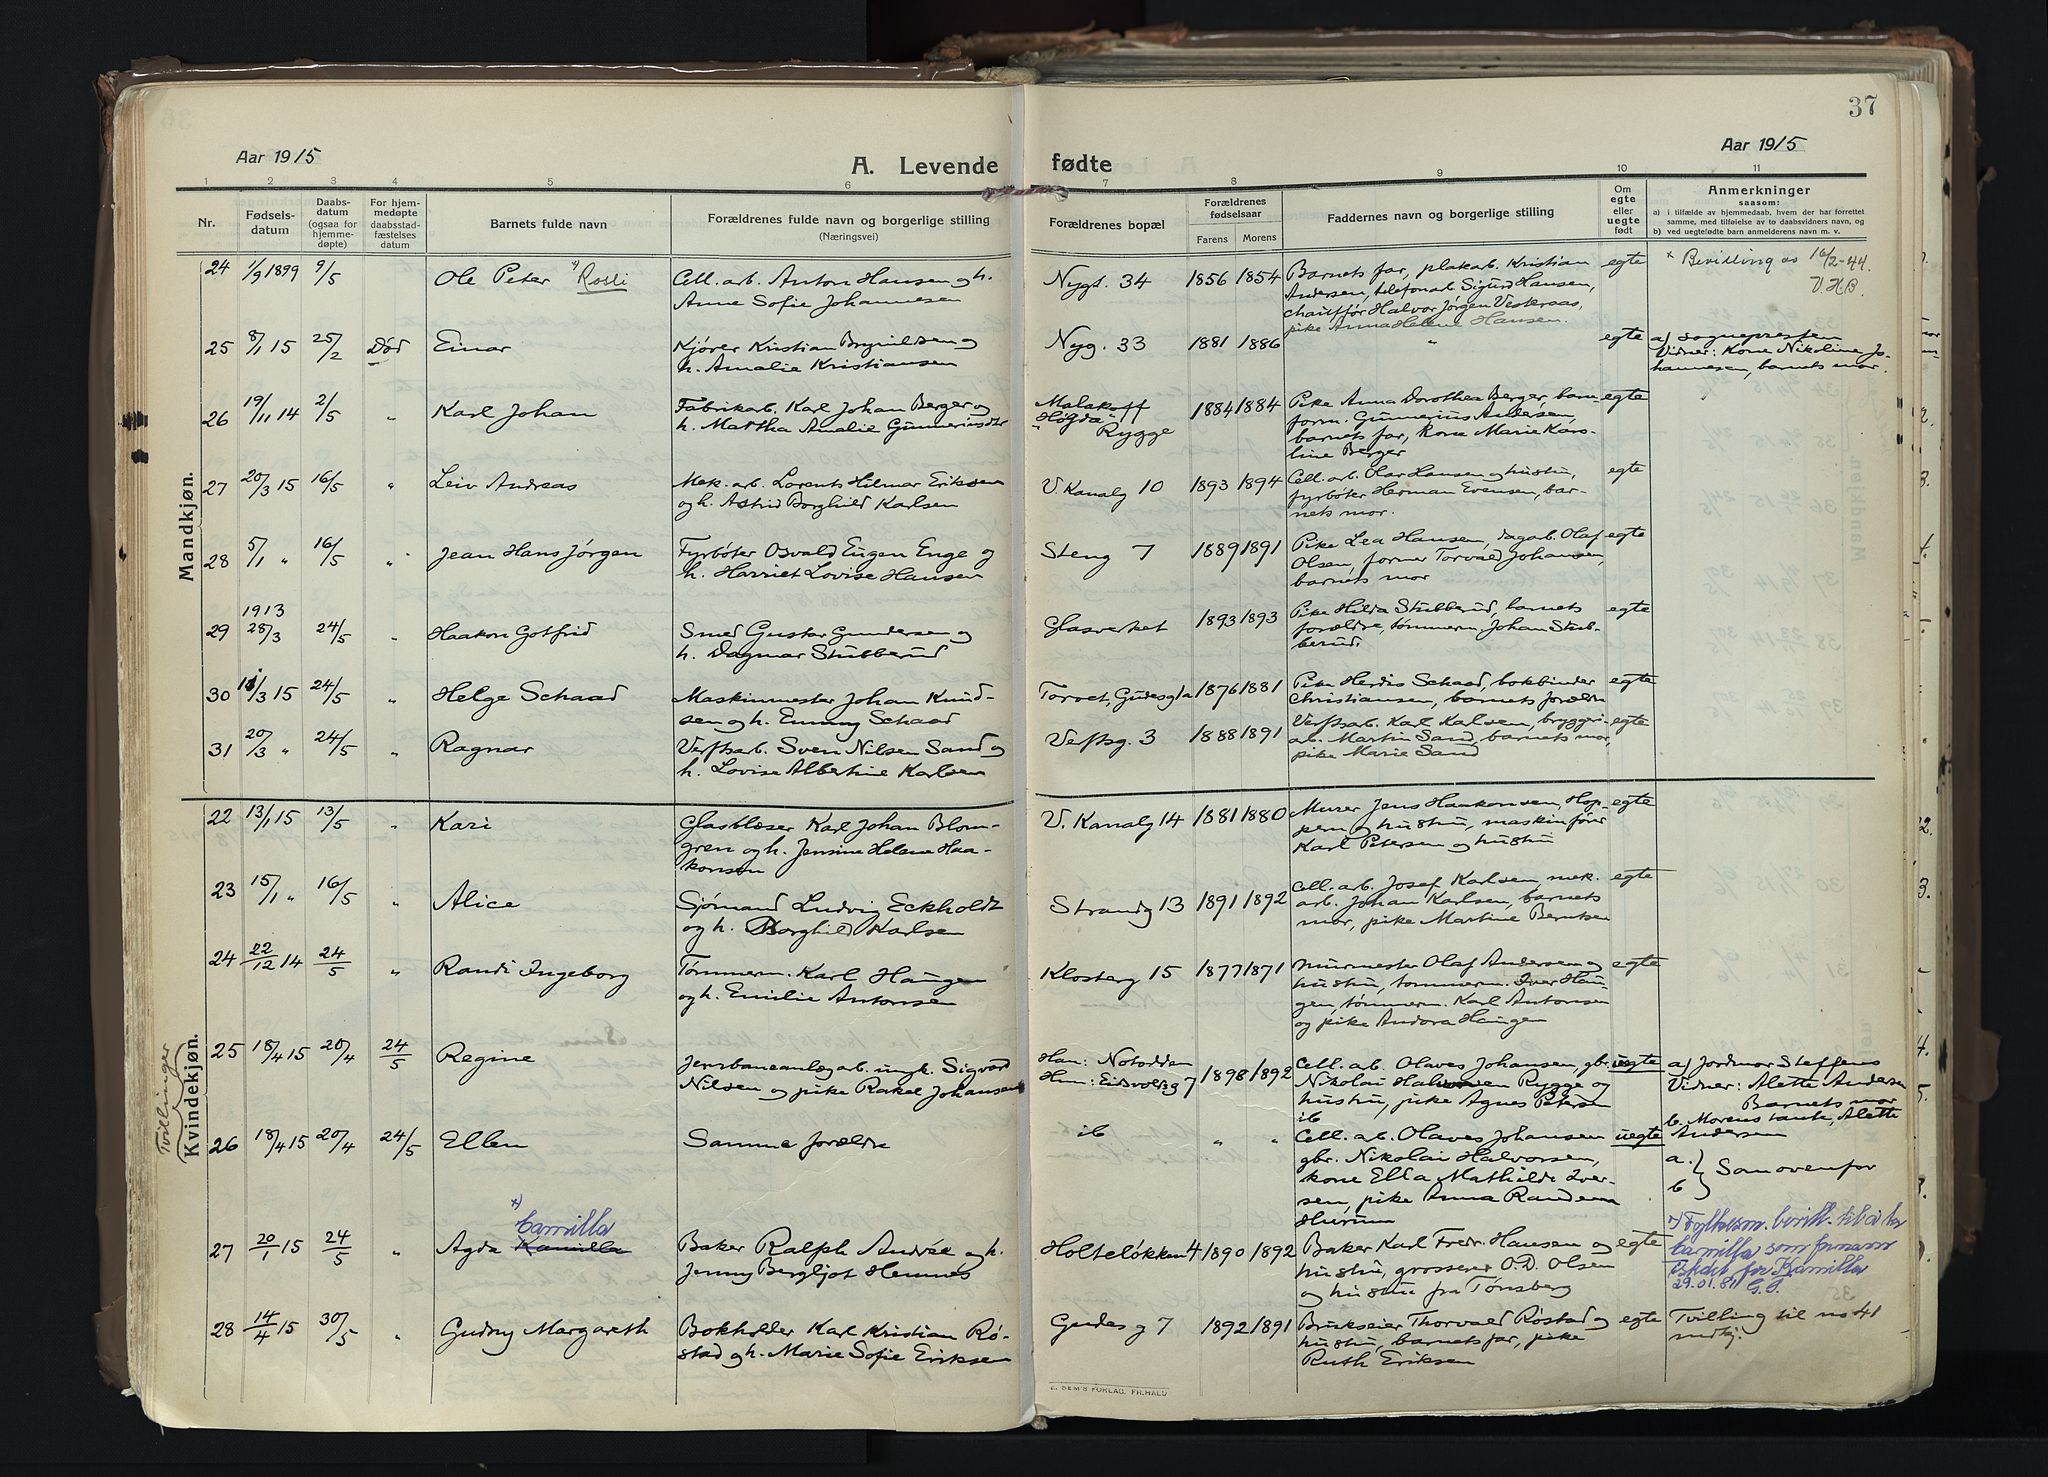 37
Aar 1915
A. Levende fødte
Aar 1915
1 2 3 4 5 6 7 8 9 10 11
Nr.
Fødsels-
datum
Daabs-
datum
(ogsaa for
hjemme-
døpte)
For hjem-
medøpte
daabsstad-
fæstelses
datum
Barnets fulde navn
Forældrenes fulde navn og borgerlige stilling
(Næringsvei)
Forældrenes bopæl
Forældrenes
fødselsaar
Farens Morens
Faddernes navn og borgerlige stilling
Om
egte
eller
uegte
født
Anmerkninger
saasom:
a) i tilfælde av hjemmedaab, hvem der har forrettet
samme, med tilføielse av to daabsvidners navn, og
b) ved uegtefødte barn anmelderens navn m. v.
Mandkjøn.
24 1/9 1899 9/5 Ole Peter x) Rosli
Cell. arb. Anton Hansen og h.
Anne Sofie Johannesen
Nygt. 34 1856 1854
Barnets far, plakarb. Kristian
Andersen, telefonarb. Sigurd Hansen,
chauffør Halvor Jørgen Vesteraas,
pike Anna Helene Hansen.
egte
x Bevilling av 16/2-44.
V.H.B.
25 8/1 15 25/2 Død Einar
Kjører Kristian Brynildsen og
h. Amalie Kristiansen
Nyg. 33 1881 1886 " egte
a) Sognepresten
Vidner: Kone Nikoline Jo-
hannesen, barnets mor.
26 19/11 14 2/5 " Karl Johan
Fabrikarb. Karl Johan Berger og
h. Martha Amalie Gunneriusdtr
Malakoff
"Høgda"
Rygge
1884 1884
Pike Anna Dorothea Berger, barn
form. Gunnerius Andersen,
barnets far, Kone Marie Karo-
line Berger
egte
27 20/3 15 16/5 " Leiv Andreas
Mek. arb. Lorents Hilmar Eriksen
og h. Astrid Borghild Karlsen
V. Kanalg 10 1893 1894
Cell. arb. Olar Hansen og hustru,
fyrbøter Herman Evensen, bar-
nets mor.
egte
28 5/1 " 16/5 " Jean Hans Jørgen
Fyrbøter Osvald Eugen Enge og
h. Harriet Lovise Hansen
Steng 7 1889 1891
Pike Lea Hansen, dagarb. Olaf
Olsen, former Torvald Johansen,
barnets mor
egte
1913
29 28/3 24/5 " Haakon Gotfrid
Smed Gustav Gundersen og
h. Dagmar Stubberud
Glasverket 1893 1893
Pike Hilda Stubberud, barnets
forældre, tømmerm. Johan Stub-
berud.
egte
30 11/3 15 24/5 " Helge Schaad
Maskinmester Johan Knud-
sen og h. Emmy Schaad
Torvet, Gudesg 1a 1876 1881
Pike Herdis Schaad, bokbinder
Christiansen, barnets forældre
egte
31 20/3 " 24/5 " Ragnar
Verftsarb. Sven Nilsen Sand og
h. Lovise Albertine Karlsen
Veftsg. 3 1888 1891
Verftsarb. Karl Karlsen, bryggeri-
arb. Martin Sand, barnets mor,
pike Marie Sand
egte
Kvindekjøn.
22 13/1 15 13/5 " Kari
Glasblæser Karl Johan Blom-
gren og h. Jensine Helene Haa-
konsen
V. Kanalg 14 1881 1880
Murer Jens Haakonsen, Hop-
pern og hustru, maskinfører
Karl Petersen og hustru
egte
23 15/1 " 16/5 " Alice
Sjømand Ludvig Eckholdt
og h. Borghild Karlsen
Strandg 13 1891 1892
Cell. arb. Josef Karlsen, mek.
arb. Johan Karlsen, barnets
mor, pike Martine Berntsen
egte
24 22/12 14 24/5 " Randi Ingeborg
Tømmerm. Karl Haugen
og h. Emilie Antonsen
Klosterg 15 1877 1871
Murmester Olaf Andersen og
hustru, tømmerm. Iver Hau-
gen, tømmerm. Karl Antonsen
og pike Andora Haugen
egte
Tvillinger
25 18/4 15 20/4 24/5 Regine
Jernbaneanlægarb. ungk. Sigvard
Nilsen og pike Rakel Johansen
Han: Notodden
Hun: Eidsvoldsg 7
1898 1892
Cell. arb. Olaves Johansen, gbr.
Nikolai Halvorsen Rygge og
hustru, pike Agnes Petersen
uegte
a) Jordmor Steffens
Vidner: Alette Andersen
Barnets mor
b. Morens tante, Alette
Andersen
26 18/4 15 20/4 24/5 Ellen
Samme forældre
ib " "
ib
Cell. arb. Olaves Johansen
gbr. Nikolai Halvorsen,
kone Ella Mathilde Iver-
sen, pike Anna Randem
Hurum
uegte
a.
b } Som ovenfor
27 20/1 15 24/5 " Agda Kamilla
x) Camilla
Baker Ralph Andrée og h.
Jenny Bergljot Hennes
Holteløkken 4 1890 1892
Baker Karl Fredr. Hansen og
hustru, grosserer O.D. Olsen
og hustru fra Tønsberg
egte
x) Fylkesm. bevill. til å ta
Camilla som fornavn
i stedet for Kamilla
29.01.81
G.S.
28 14/4 15 30/5 " Gudny Margareth
Bokholder Karl Kristian Rø-
stad og h. Marie Sofie Eriksen
Gudesg 7 1892 1891
Brukseier Thorvald Røstad og
hustru, barnets far, pike
Ruth Eriksen
egte
Tvilling til no 41
mdkj.
E. SEM'S FORLAG, FR.HALD